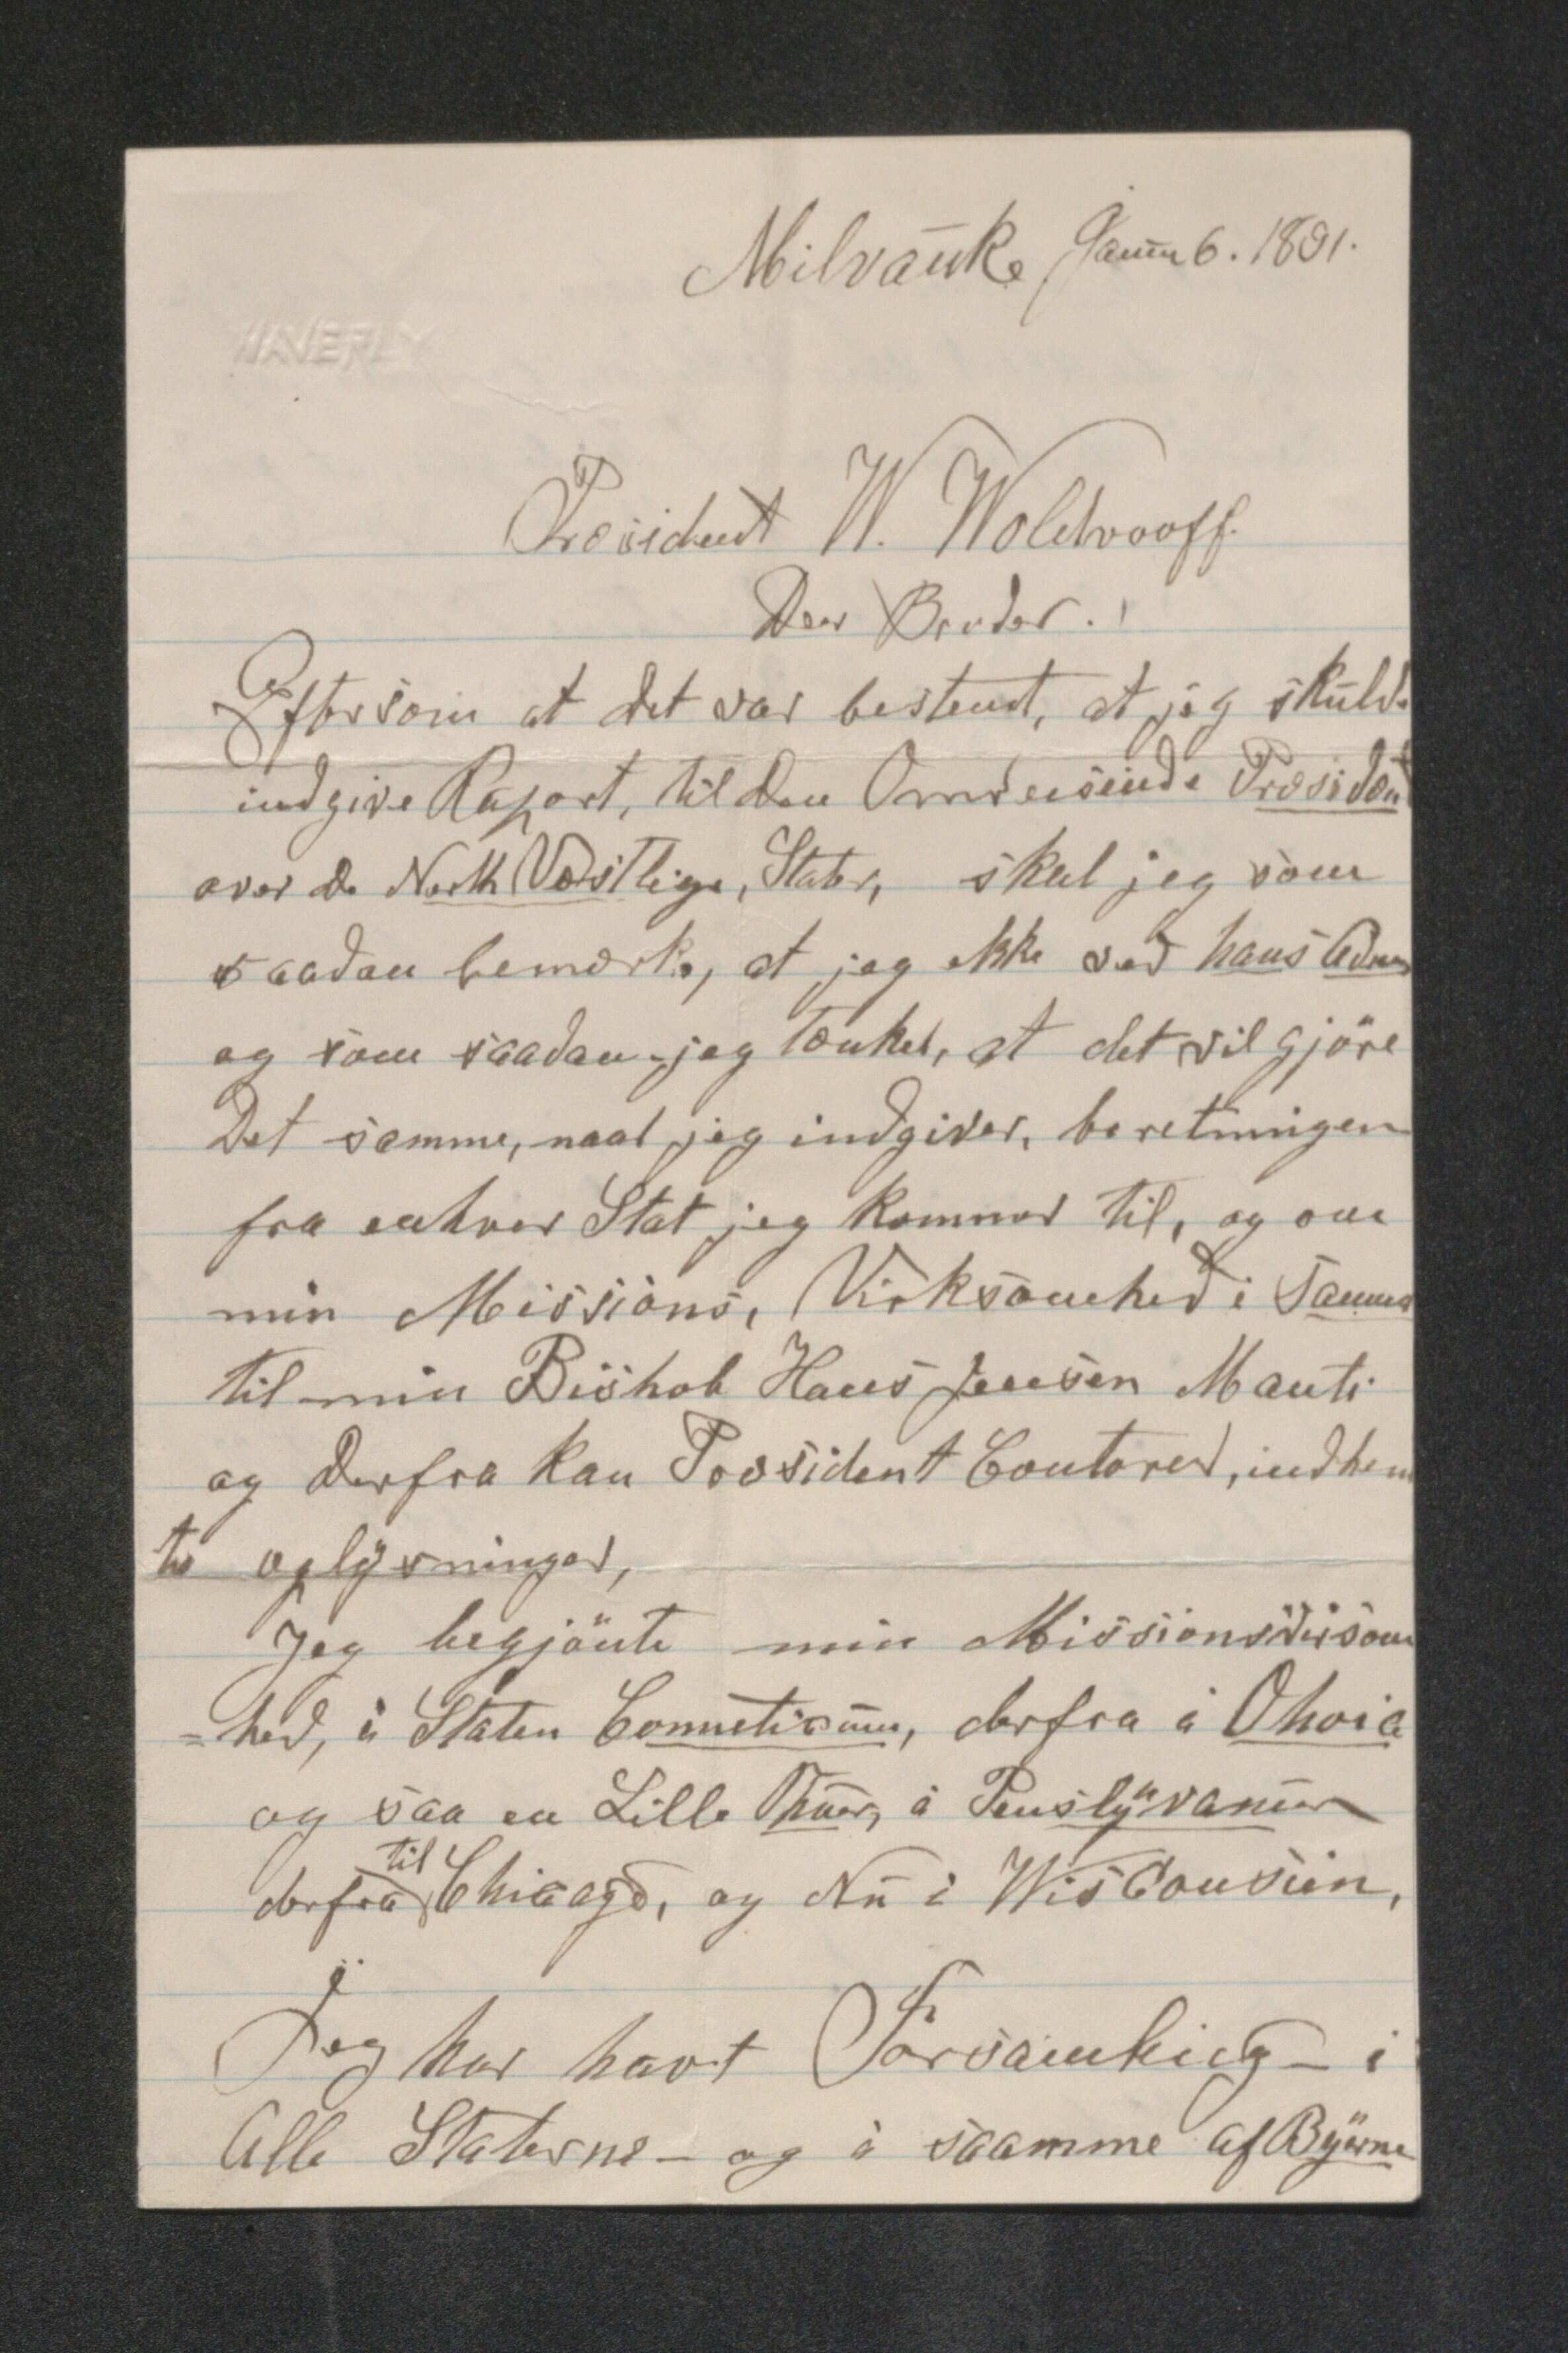 Milvauke Janüu 6. 1891.
WAVERLY
President W. Woldrooff.
Dear Broder.!
Eftersom at det var bestemt, at jeg skulde
indgive Raport, til den Omreisende President
over de North Vestlige, Stater, skal jeg som
saadan bemærke, at jeg ikke ved hans Adres
og som saadan jeg tænker, at det vil gjöre
Det samme, naar jeg indgiver, beretningen
fra enhver Stat jeg kommer til, og om
min Missions, Virksomhed i Samme
til min Bishob Hans Jensen Manti
og derfra kan President Contoret, indhem
te oplysninger,
Jeg begjönte min Missionsvirsom
=hed, i Staten Conneticum, derfra i Ohoia
og saa en Lille Thuer, i Penslyvanien
derfra til Chicago, og Nu i Wisconsin,
Jeg har havt Forsamling - i
Alle Staterne - og i saamme af Byerne